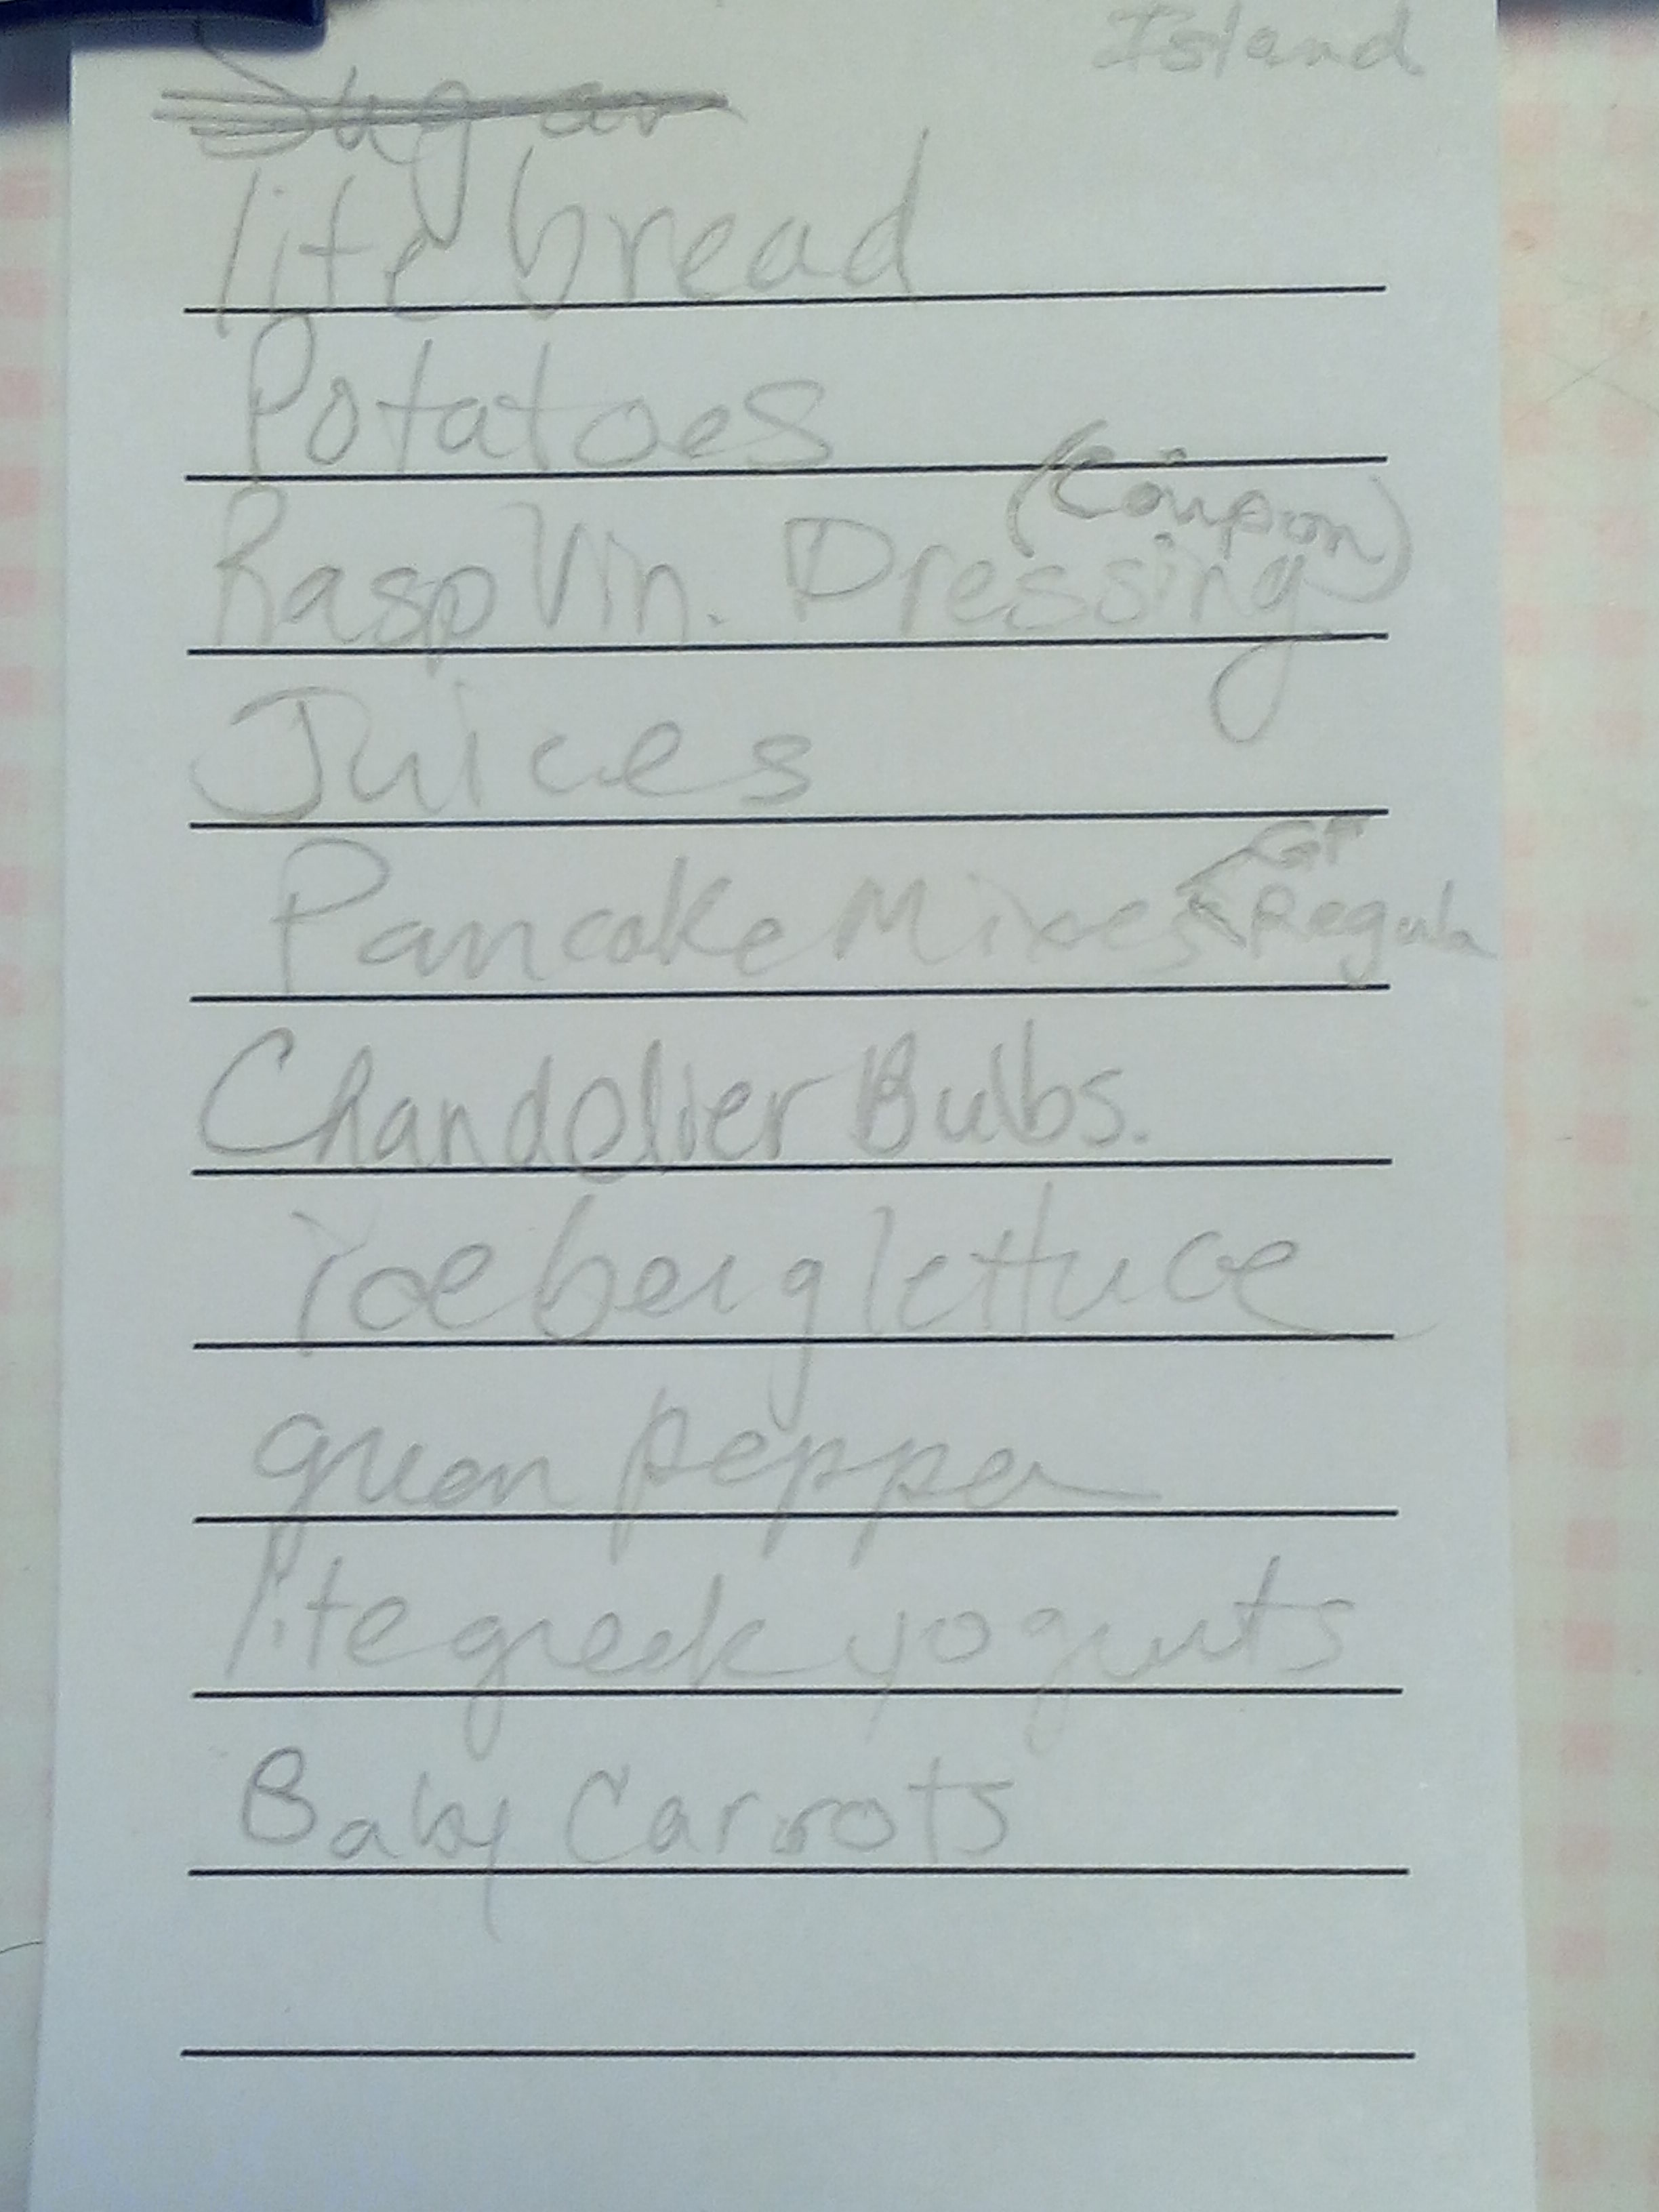 Island
Sugar
lite bread
Potatoes
(Coupon)
Rasp Vin. Dressing
Juices
GF
Pancake Mixes Regula
Chandelier Bulbs.
iceberg lettuce
green pepper
lite greek yogurts
Baby Carrots